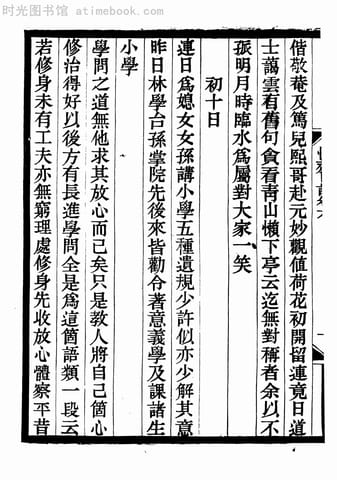 时光图书馆 atimebook.com
偕敬菴及篤兒熙哥赴元妙觀值荷花初開留連竟日道
士藹雲有舊句貪看青山懶下亭云迄無對稱者余以不
孤明月時臨水爲屬對大家一笑
初十日
連日爲媳女女孫講小學五種遺規少許似亦少解其意
昨日林學台孫掌院先後來皆勸令著意義學及課諸生
小學
學問之道無他求其放心而已矣只是教人將自己箇心
修治得好以後方有長進學問全是爲這箇語類一段云
若修身未有工夫亦無窮理處修身先收放心體察平昔